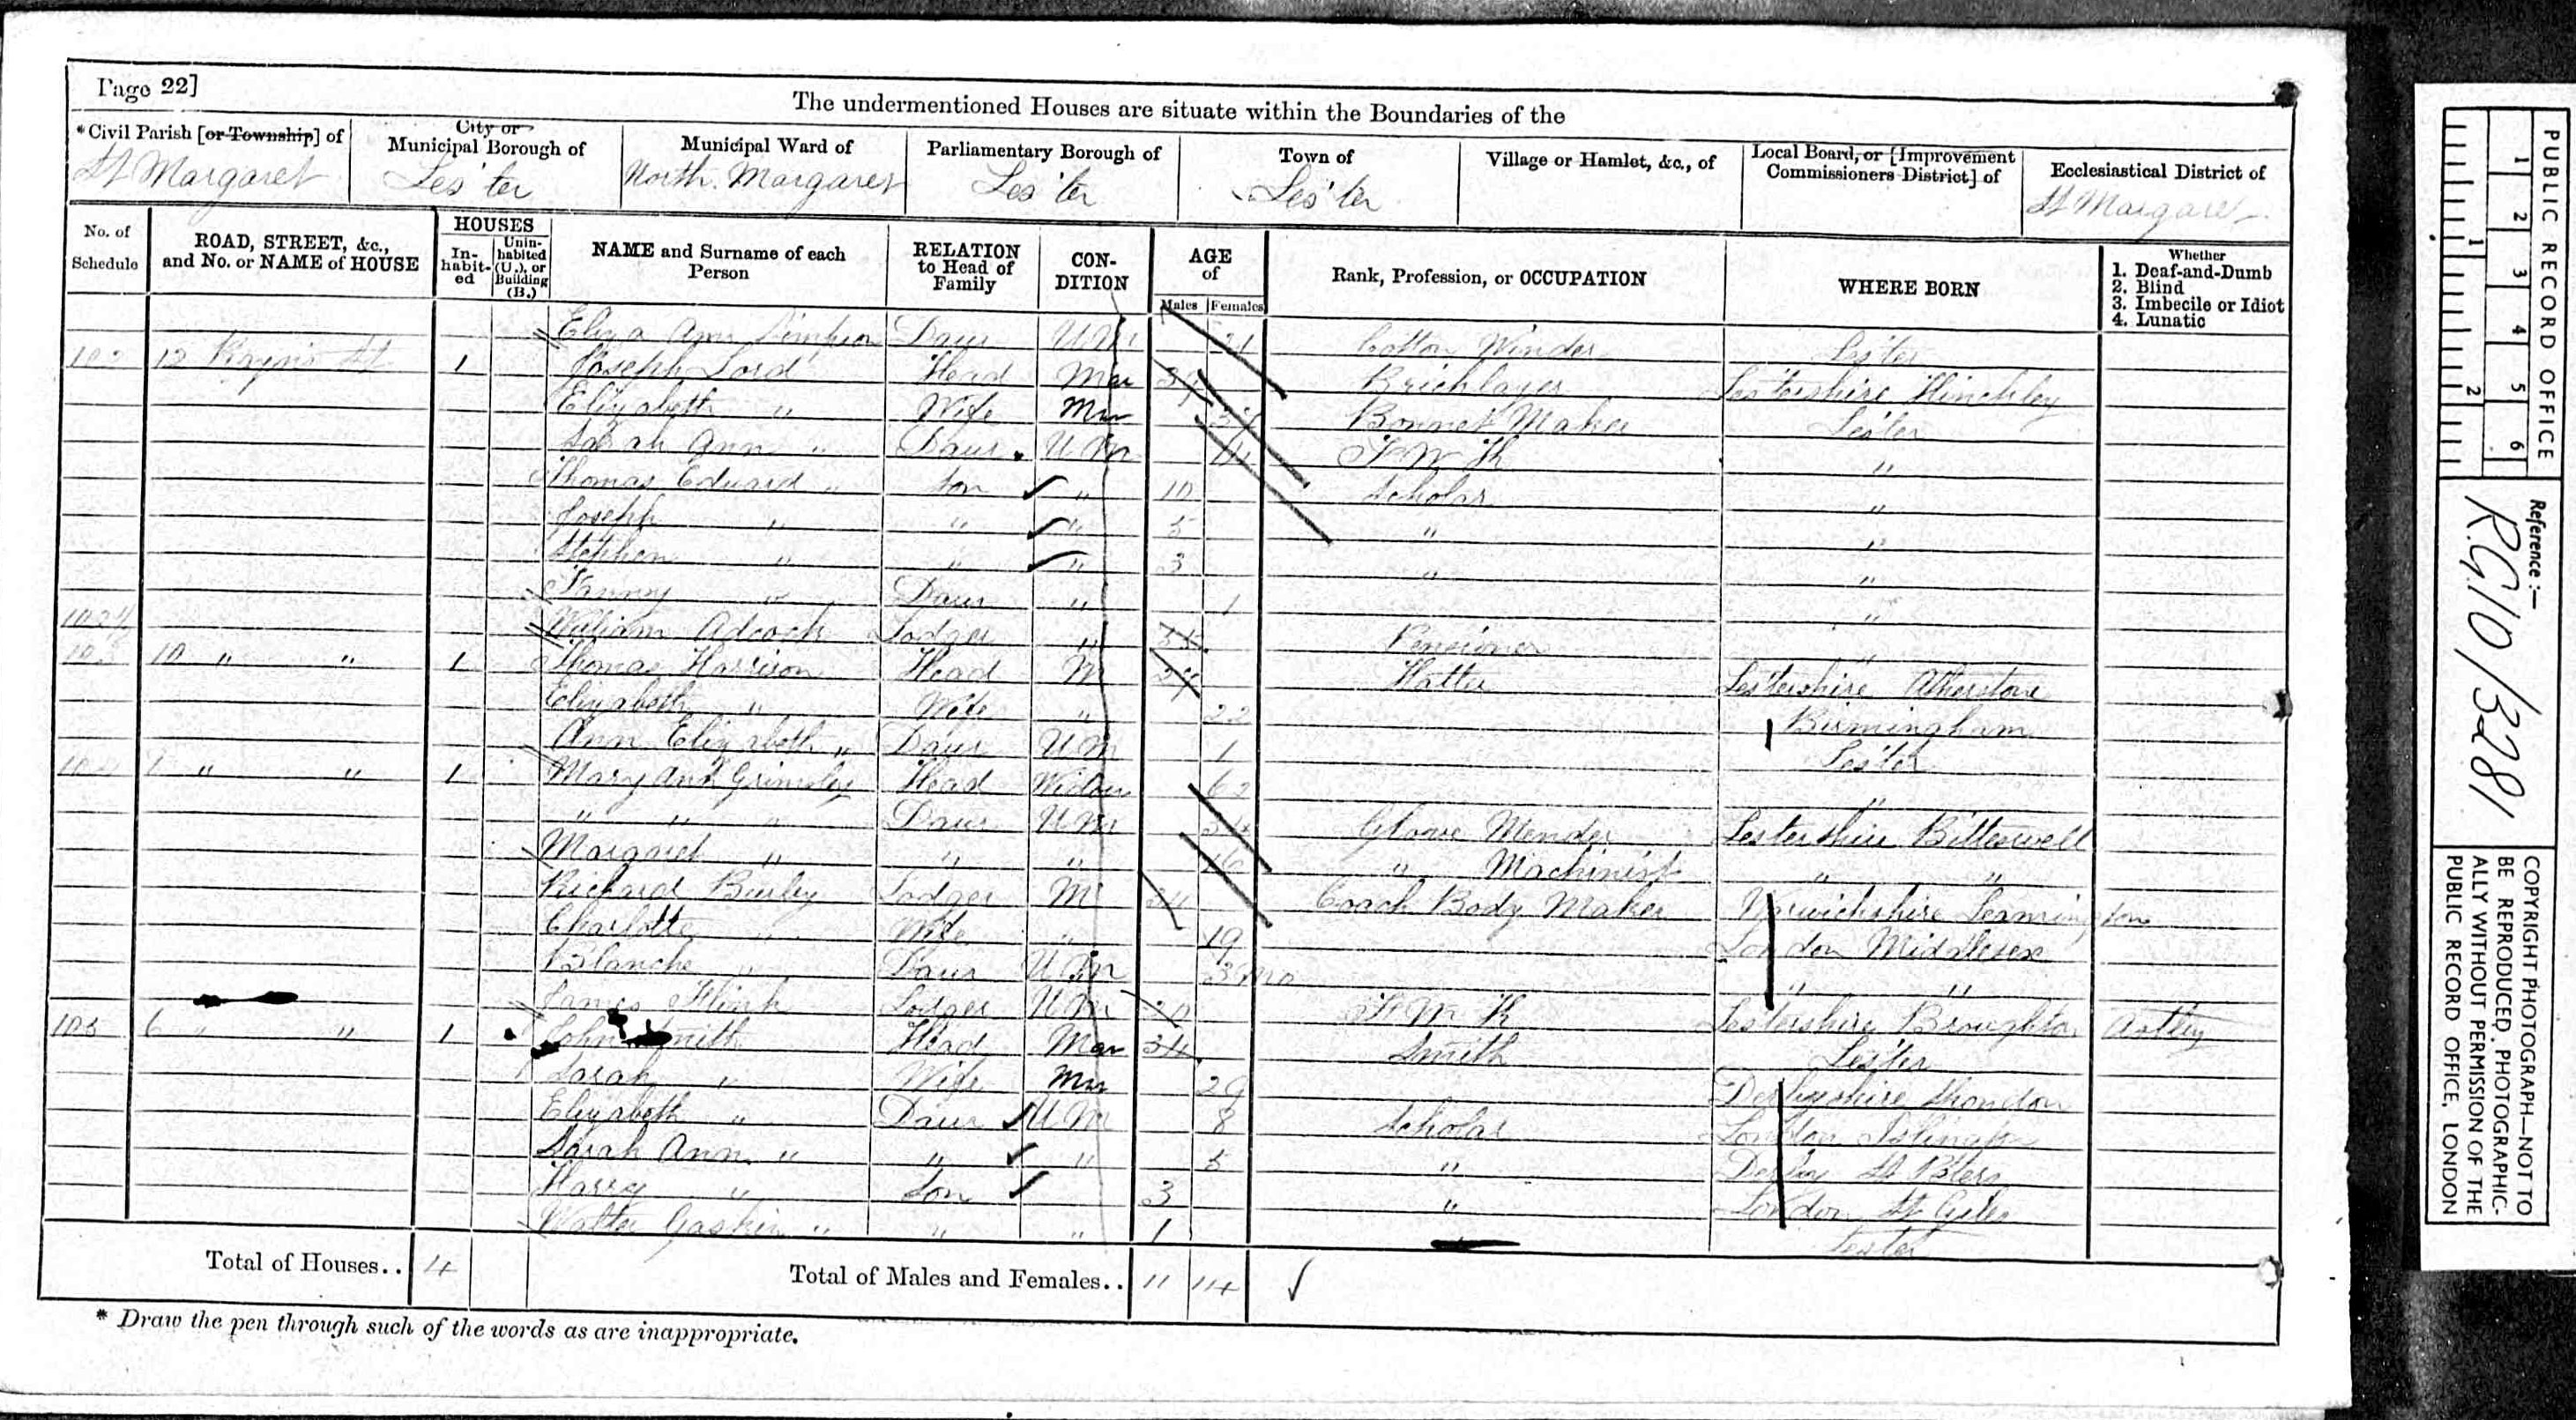 Page 22]
The undermentioned Houses are situate within the Boundaries of the
*Civil Parish [or Township] of
City or Municipal Borough of
Municipal Ward of
Parliamentary Borough of
Town of
Village or Hamlet, &c., of
Local Board, or [Improvement Commissioners District] of
Ecclesiastical District of
St Margaret Les'ter North Margaret Les'ter Les'ter St Margaret
No. of Schedule
ROAD, STREET, &c., and No. or NAME of HOUSE
HOUSES
Inhabited
Uninhabited (U.), or Building (B.)
NAME and Surname of each Person
RELATION to Head of Family
CONDITION
AGE of
Males Females
Rank, Profession, or OCCUPATION
WHERE BORN
Whether
1. Deaf-and-Dumb
2. Blind
3. Imbecile or Idiot
4. Lunatic
Eliza Ann Simpson Daur U M Cotton Winder Les'ter
102 12 St 1 Joseph Lord Head Mar Bricklayer Les'tershire Hinckley
Elizabeth " Wife Mar Bonnet Maker Les'ter
Sarah Ann " Daur U M F W K "
Thomas Edward " Son " 10 Scholar "
Joseph " " " 5 " "
Stephen " " " 3 " "
Fanny " Daur " 1 "
102½ William Adcock Lodger " Pensioner "
103 10 " " 1 Thomas Harrison Head M Hatter Les'tershire Atherstone
Elizabeth " Wife " 22 Birmingham
Ann Elizabeth " Daur U M 1 Les'ter
104 " " 1 Mary Ann Grimsley Head Widow 62 "
" " " Daur U M 34 Glove Mender Lestershire Bitteswell
Margaret " " " 16 " Machinist " "
Richard Burley Lodger M 34 Coach Body Maker Warwickshire Leamington
Charlotte " Wife " 19 London Middlesex
Blanche " Daur U M 3 mo " "
James Lodger U M 20 F W K Lestershire Broughton Astley
105 6 " " 1 John Smith Head Mar 34 Smith Les'ter
Sarah " Wife Mar 29 Derbyshire
Elizabeth " Daur U M 8 Scholar London Islington
Sarah Ann " " " 5 " Derby St Peters
Harry " Son 3 " London St Giles
Walter Gaskin " " " 1 Lester
Total of Houses.. 4
Total of Males and Females.. 11 14
* Draw the pen through such of the words as are inappropriate.
PUBLIC RECORD OFFICE
1 2 3 4 5 6
1 2
Reference:-
R.G.10/3281
COPYRIGHT PHOTOGRAPH—NOT TO
BE REPRODUCED PHOTOGRAPHIC-
ALLY WITHOUT PERMISSION OF THE
PUBLIC RECORD OFFICE, LONDON